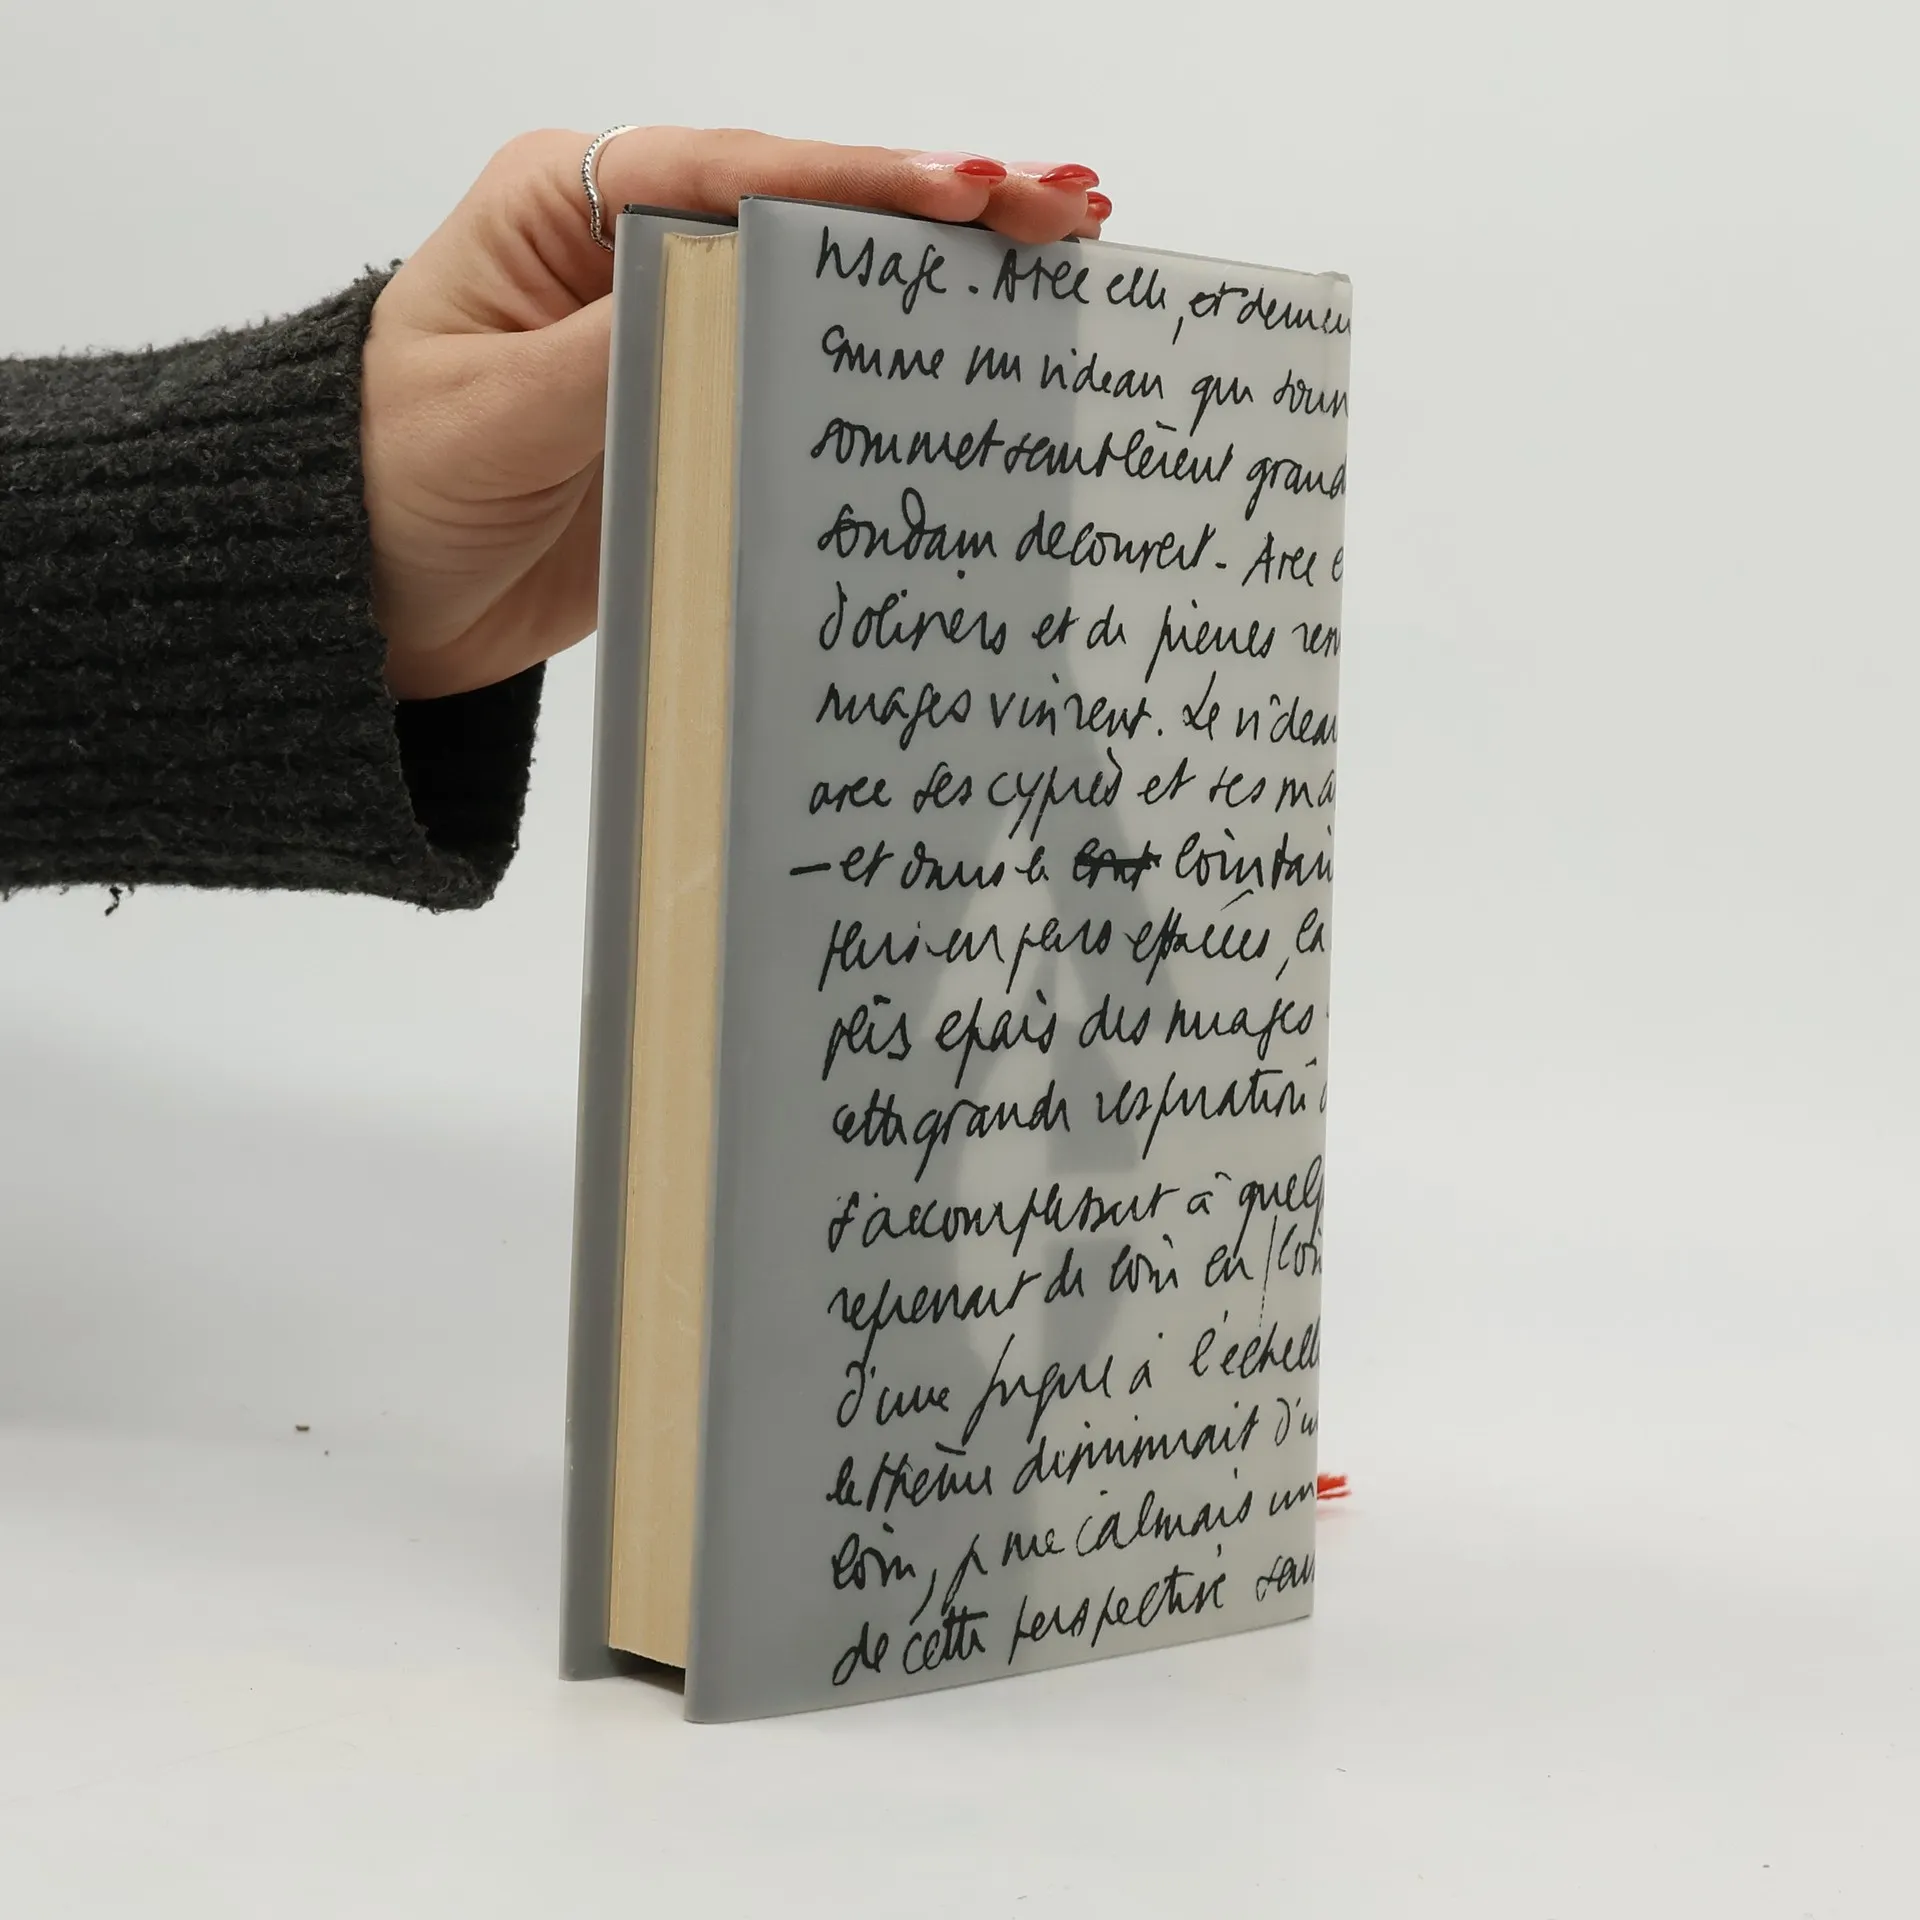 visage. Avec elle, et
comme un rideau qui
sommet semblèrent grand
soudain découvert. Avec e
d'oliviers et de pierres
nuages vinrent. Le rideau
avec ses cyprès et ses ma
— et dans le lointain
plus en plus effacées, la
plis épais des nuages
cette grande respiration
s'accomplissant à quelq
reprenait de loin en loin
d'une fugue à l'échelle
le thème diminuait d'u
loin, je me calmais un
de cette perspective